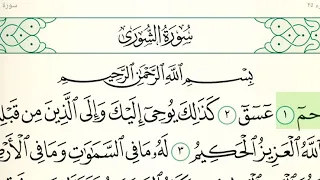 سورة
سُورَةُ الشُّورَىٰ
بِسْمِ اللَّهِ الرَّحْمَٰنِ الرَّحِيمِ
حمٓ ١ عٓسٓقٓ ٢ كَذَٰلِكَ يُوحِىٓ إِلَيْكَ وَإِلَى ٱلَّذِينَ مِن قَبْلِكَ
ٱللَّهُ ٱلْعَزِيزُ ٱلْحَكِيمُ ٣ لَهُۥ مَا فِى ٱلسَّمَٰوَٰتِ وَمَا فِى ٱلْأَرْضِ